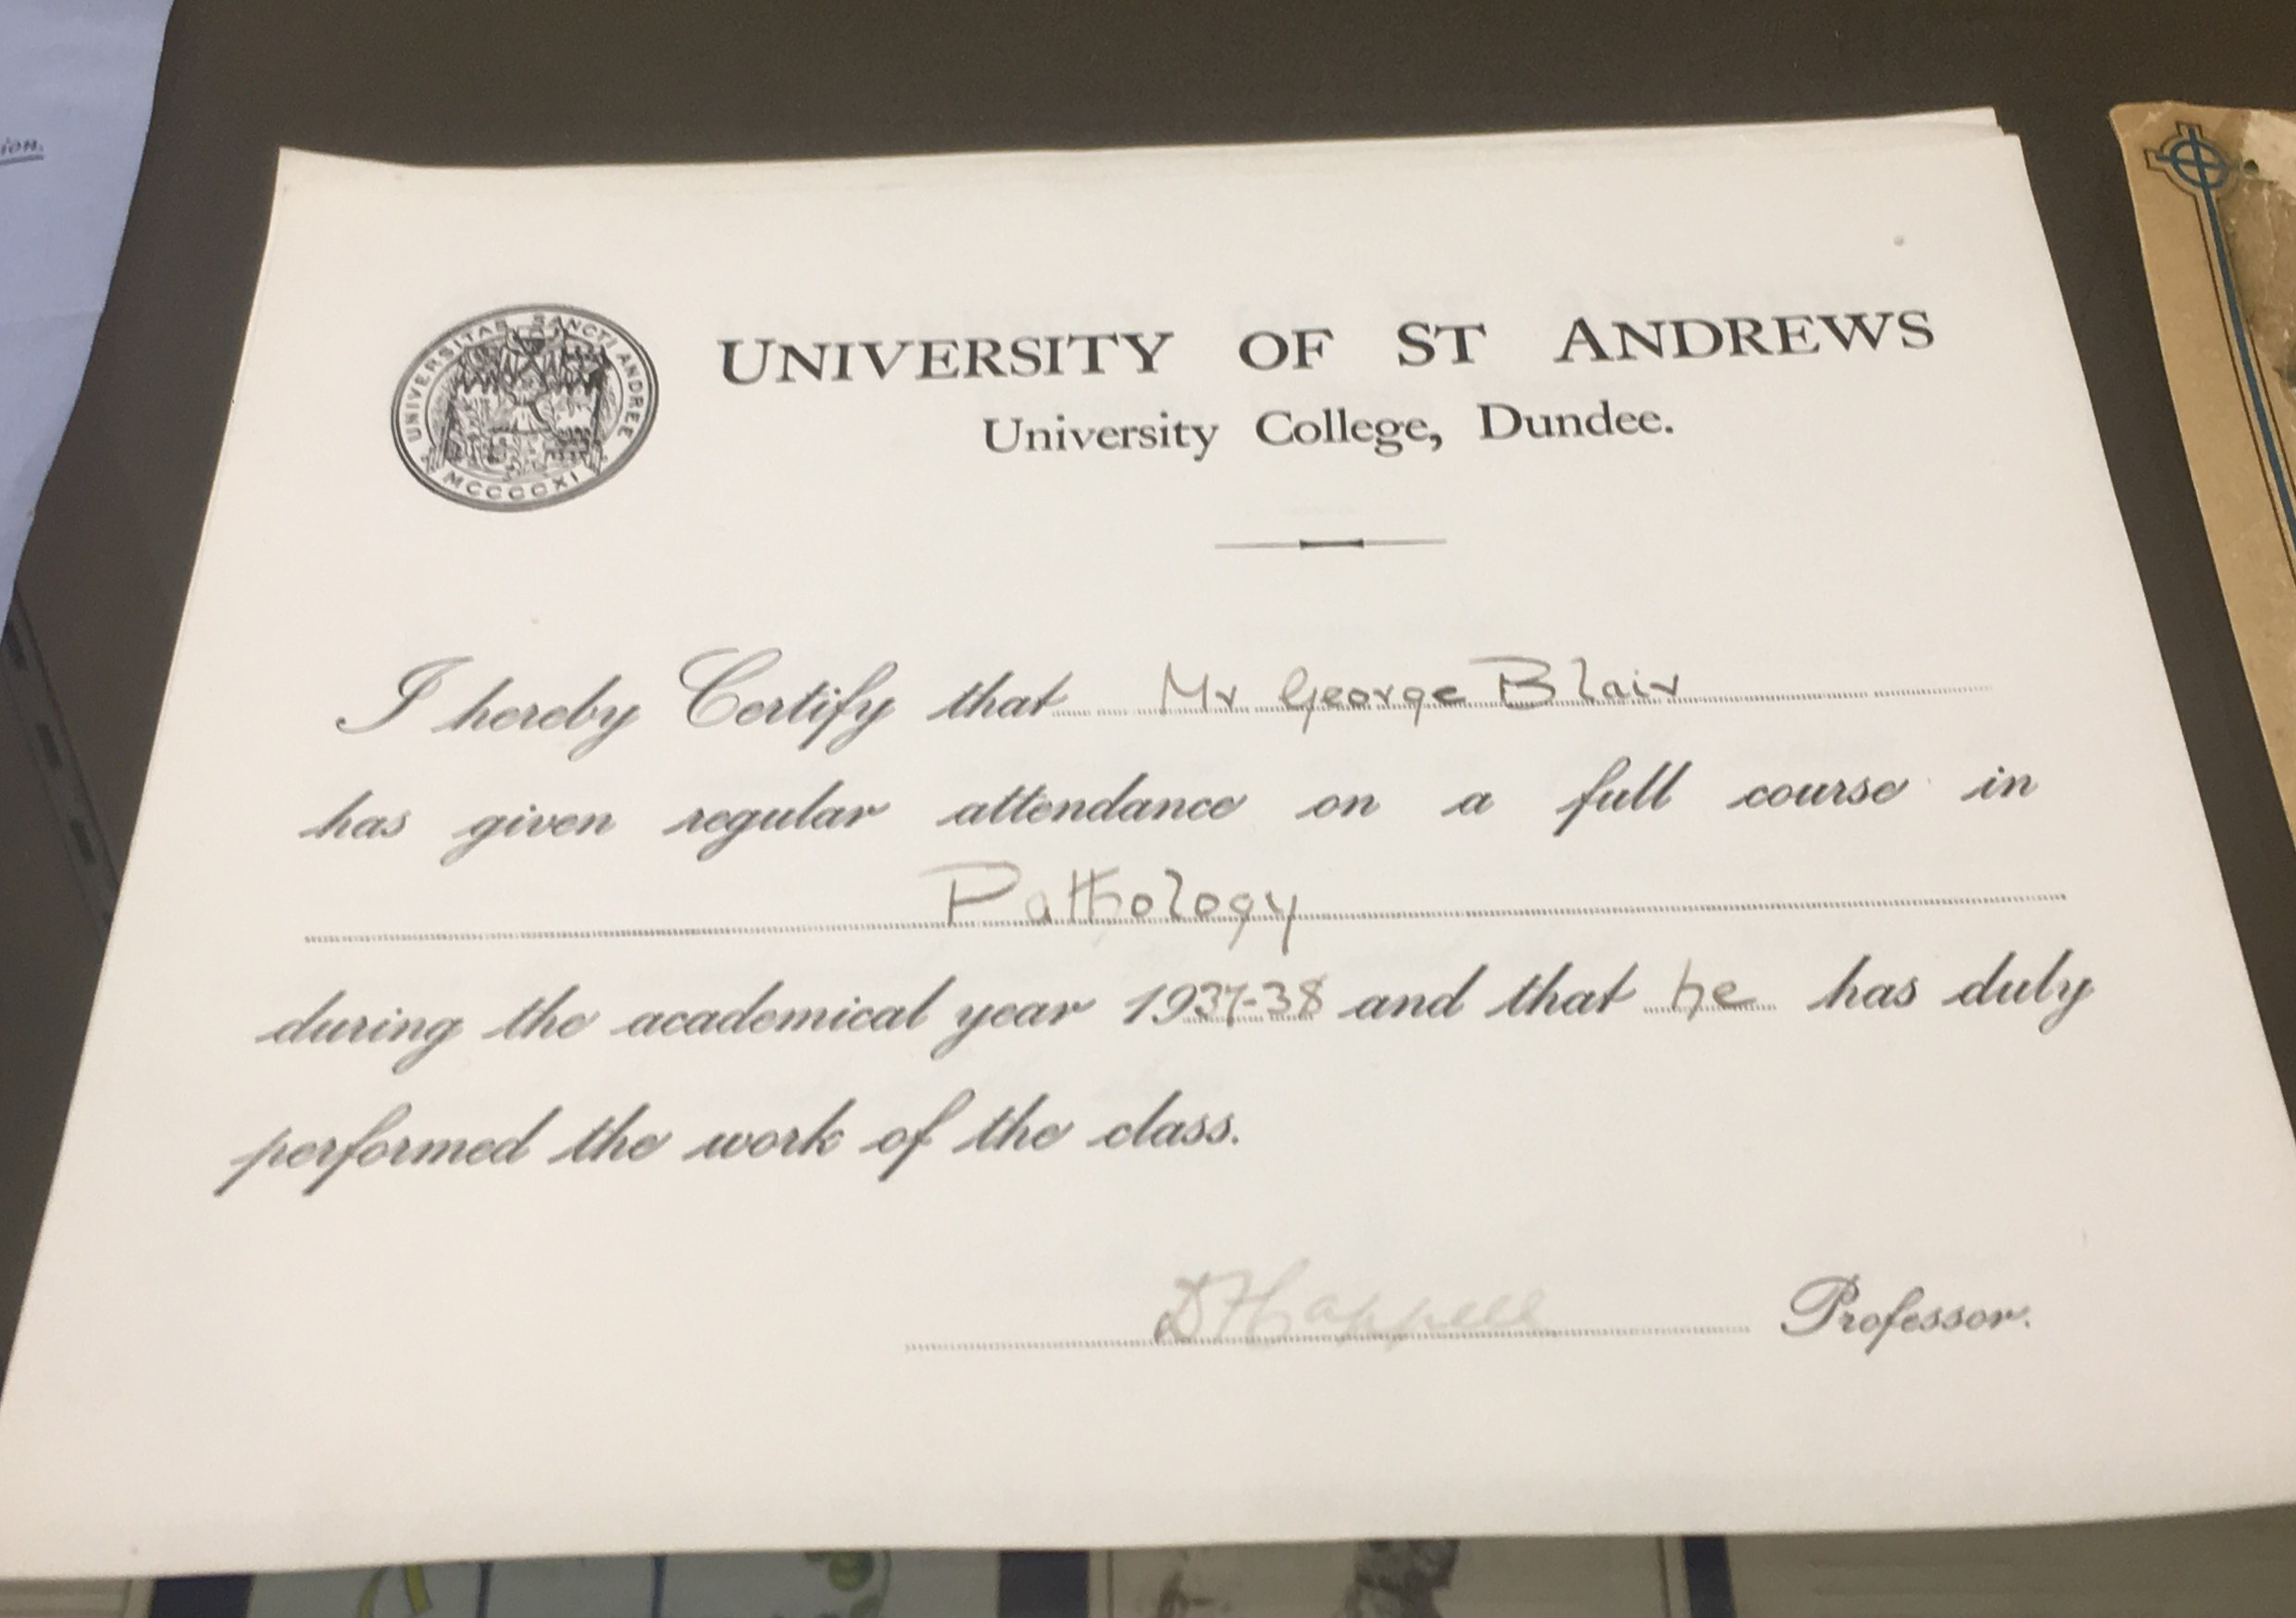 ion.
UNIVERSITAS SANCTI ANDREE
MCCCCXI
UNIVERSITY OF ST ANDREWS
University College, Dundee.
I hereby Certify that Mr George Blair
has given regular attendance on a full course in
Pathology
during the academical year 1937-38 and that he has duly
performed the work of the class.
DFCappell Professor.